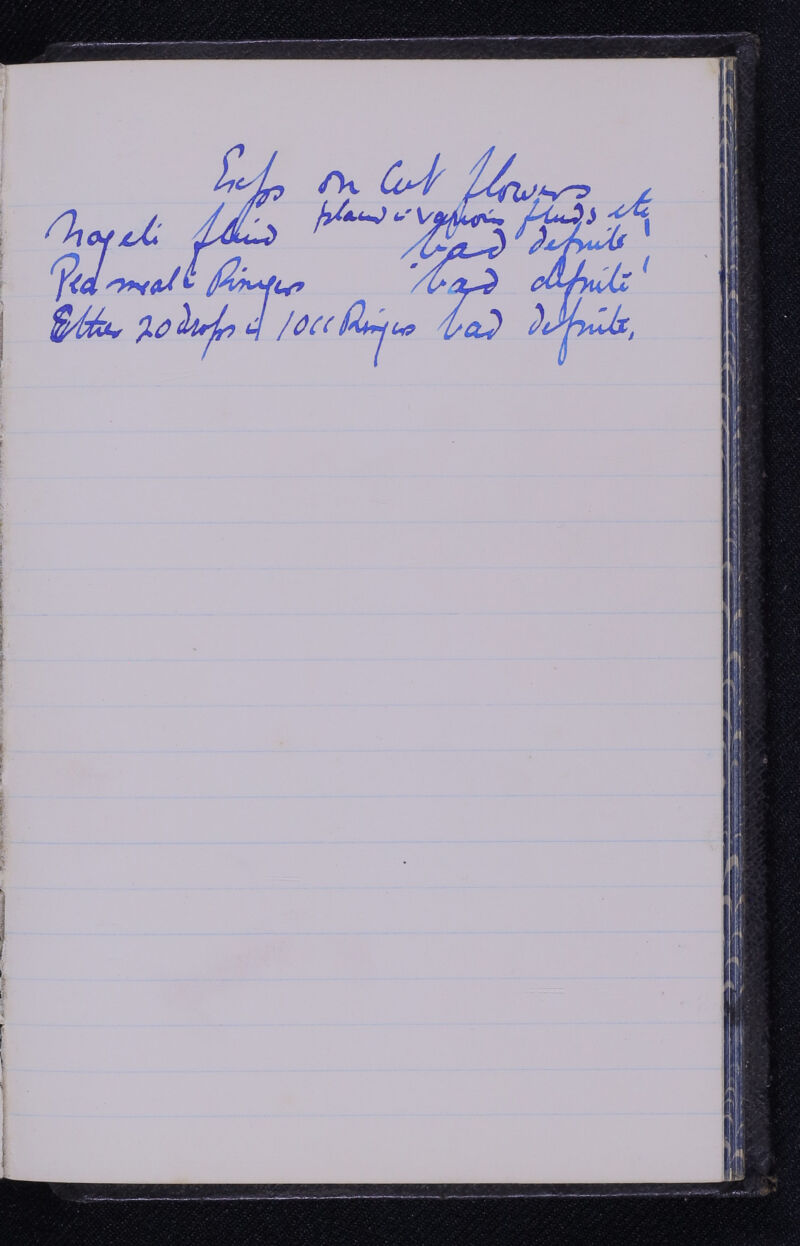 Exps on Cut flowers
placed in various fluids etc
Nageli fluid bad definite!
Pea meal & Ringers bad definite!
Ether 20 drops in 10cc Ringers bad definite,